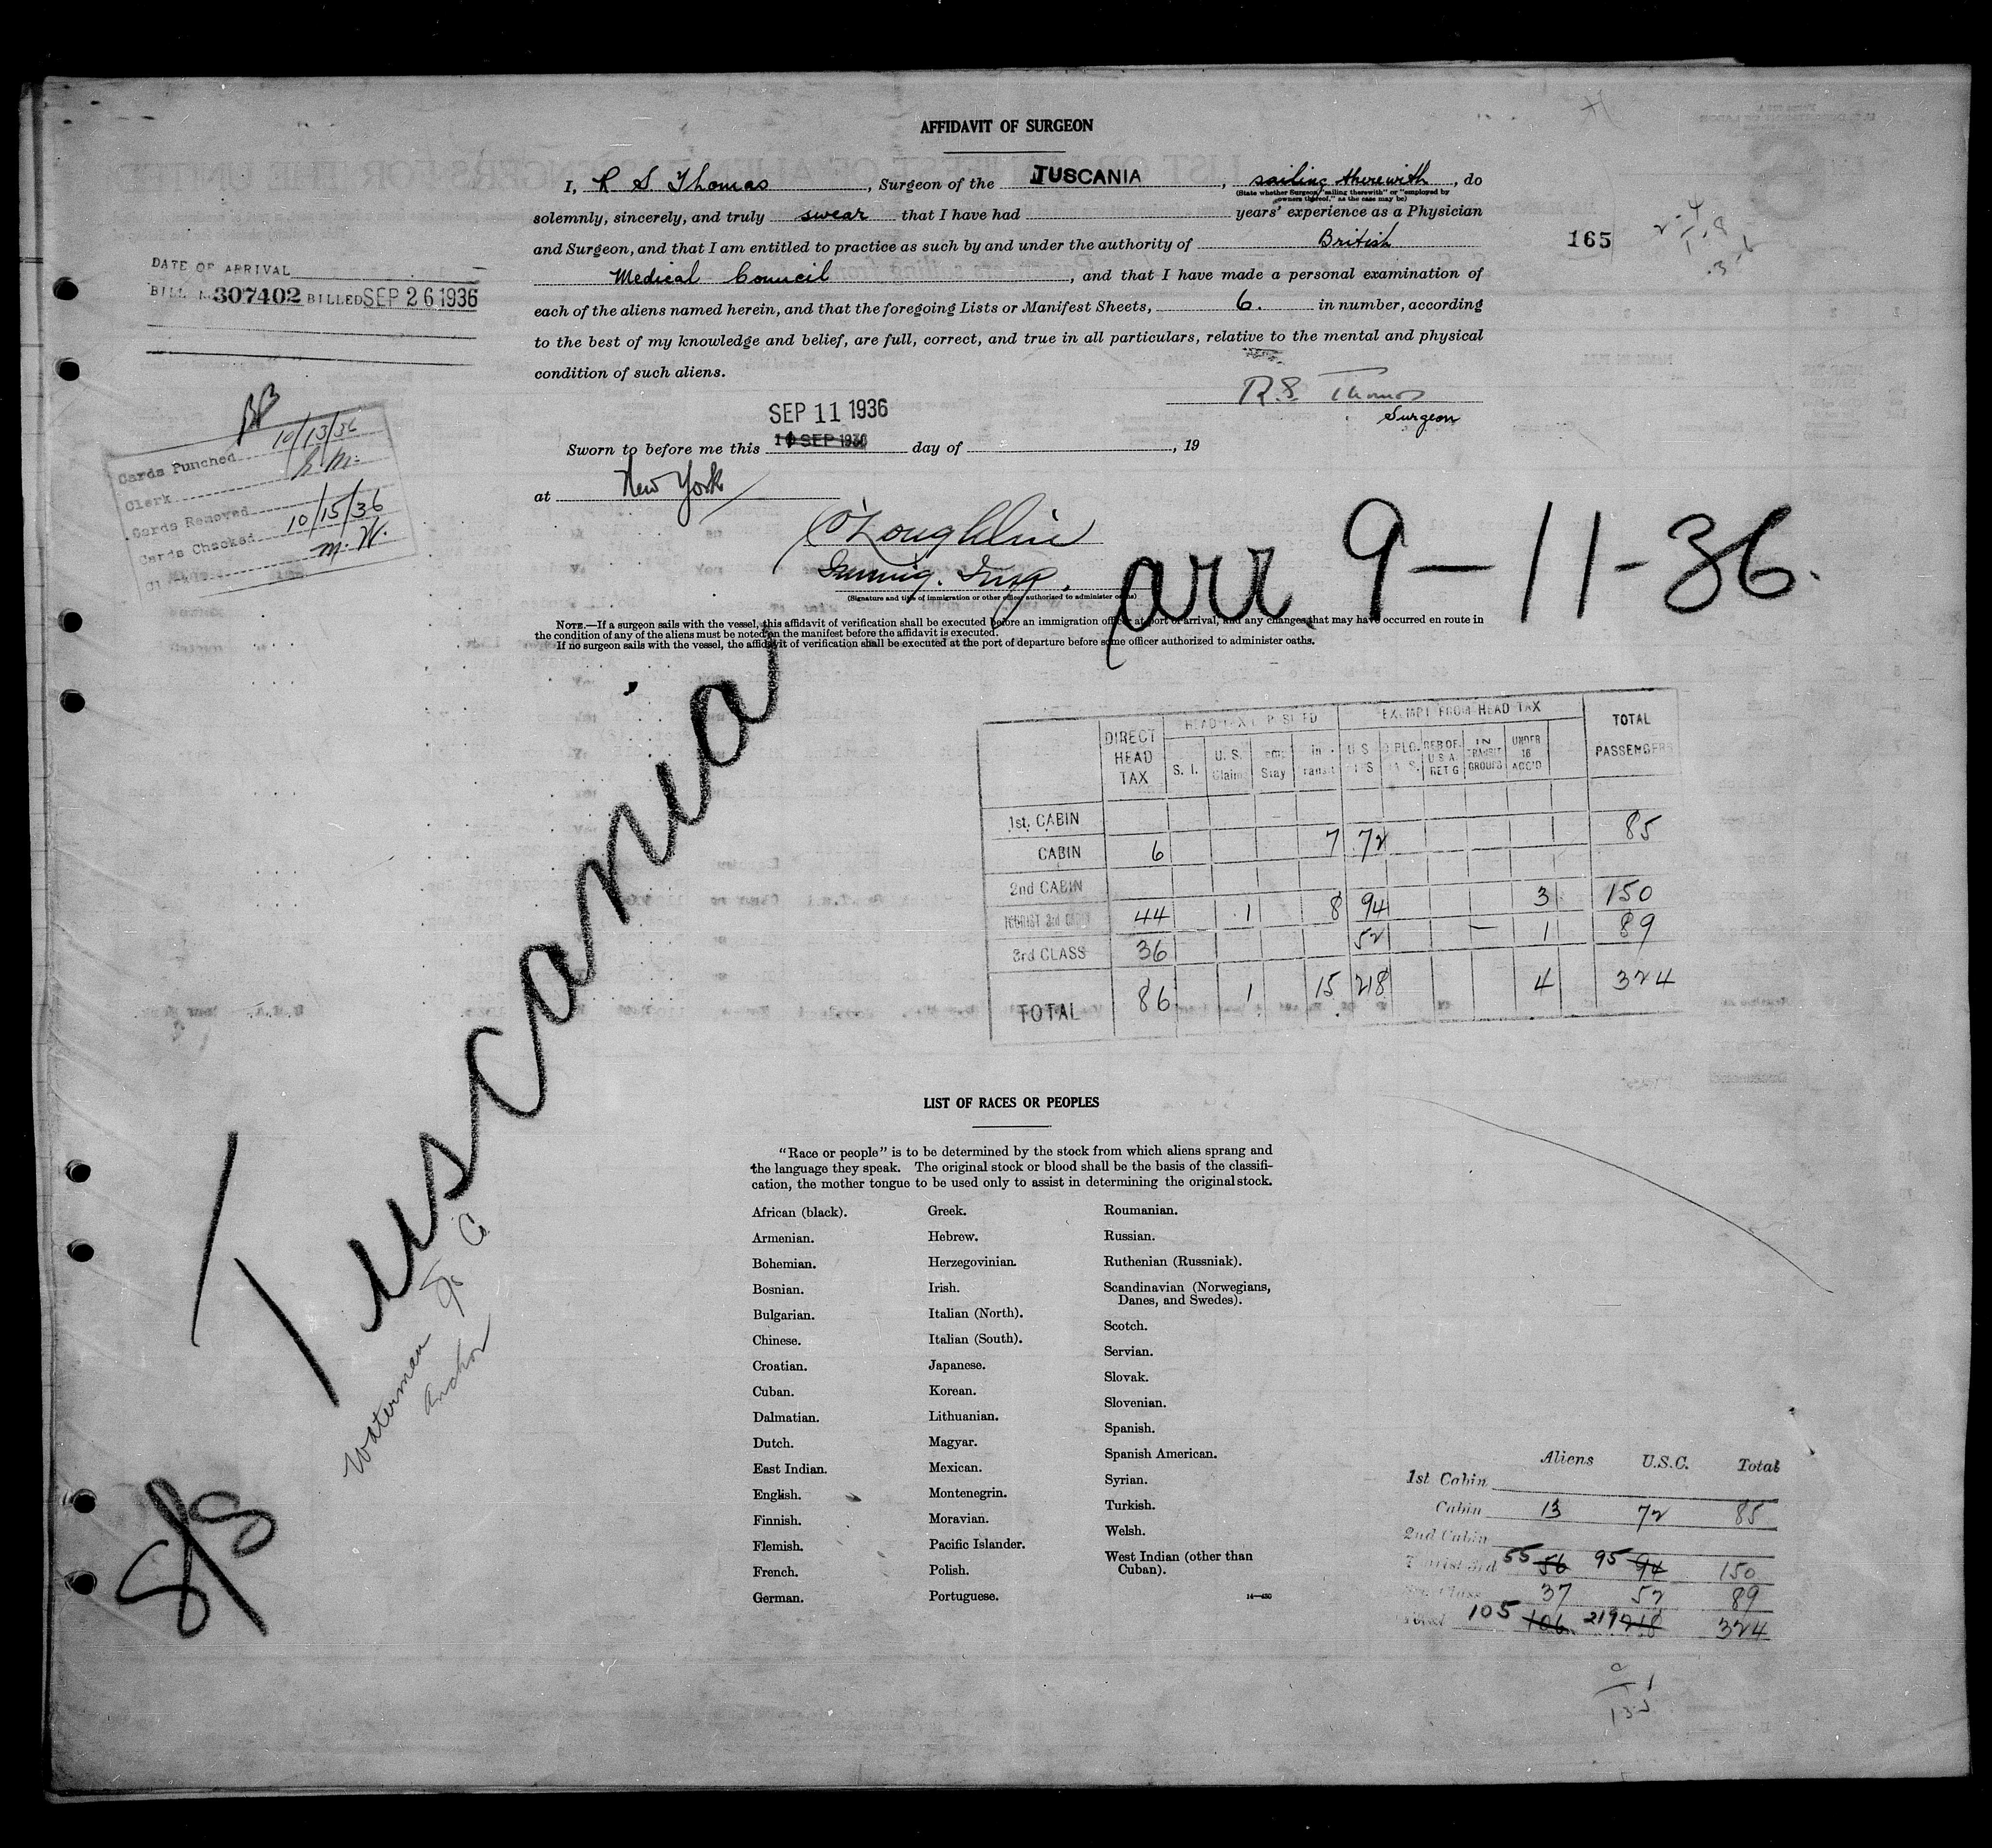 AFFIDAVIT OF SURGEON
I, R S Thomas, Surgeon of the TUSCANIA, sailing therewith, do
(State whether Surgeon "sailing therewith" or "employed by
owners thereof," as the case may be)
solemnly, sincerely, and truly swear that I have had years' experience as a Physician
and Surgeon, and that I am entitled to practice as such by and under the authority of British
165
Medical Council, and that I have made a personal examination of
each of the aliens named herein, and that the foregoing Lists or Manifest Sheets, 6. in number, according
to the best of my knowledge and belief, are full, correct, and true in all particulars, relative to the mental and physical
condition of such aliens.
DATE OF ARRIVAL
BILL 307402 BILLED SEP 26 1936
R.S. Thomas
Surgeon
SEP 11 1936
Sworn to before me this 10 SEP 1936 day of , 19
at New York
10/13/36
Cards Punched
Clerk
Cards Removed
10/15/36
Cards Checked
M. W.
O'Loughlin
Immig. Insp.
(Signature and title of immigration or other officer authorized to administer oaths)
arr. 9-11-36.
NOTE.—If a surgeon sails with the vessel, this affidavit of verification shall be executed before an immigration officer at port of arrival, and any changes that may have occurred en route in
the condition of any of the aliens must be noted on the manifest before the affidavit is executed.
If no surgeon sails with the vessel, the affidavit of verification shall be executed at the port of departure before some officer authorized to administer oaths.
Tuscania
Waterman
Anchor
DIRECT HEAD TAX
S. I.
U. S. Claim
Stay
in Transit
EXEMPT FROM HEAD TAX
U S
RES OF U S A RET G
IN TRANSIT GROUPS
UNDER 16 ACC'D
TOTAL PASSENGERS
1st. CABIN
CABIN 6 7 72 85
2nd CABIN
TOURIST 3rd 44 1 8 94 3 150
3rd CLASS 36 52 1 89
TOTAL 86 1 15 218 4 324
LIST OF RACES OR PEOPLES
"Race or people" is to be determined by the stock from which aliens sprang and
the language they speak. The original stock or blood shall be the basis of the classifi-
cation, the mother tongue to be used only to assist in determining the original stock.
African (black).
Armenian.
Bohemian.
Bosnian.
Bulgarian.
Chinese.
Croatian.
Cuban.
Dalmatian.
Dutch.
East Indian.
English.
Finnish.
Flemish.
French.
German.
Greek.
Hebrew.
Herzegovinian.
Irish.
Italian (North).
Italian (South).
Japanese.
Korean.
Lithuanian.
Magyar.
Mexican.
Montenegrin.
Moravian.
Pacific Islander.
Polish.
Portuguese.
Roumanian.
Russian.
Ruthenian (Russniak).
Scandinavian (Norwegians,
Danes, and Swedes).
Scotch.
Servian.
Slovak.
Slovenian.
Spanish.
Spanish American.
Syrian.
Turkish.
Welsh.
West Indian (other than
Cuban).
14—430
Aliens U.S.C. Total
1st Cabin
Cabin 13 72 85
2nd Cabin
Tourist 3rd 55 56 95 94 150
Class 37 52 89
Total 105 106 219 218 324